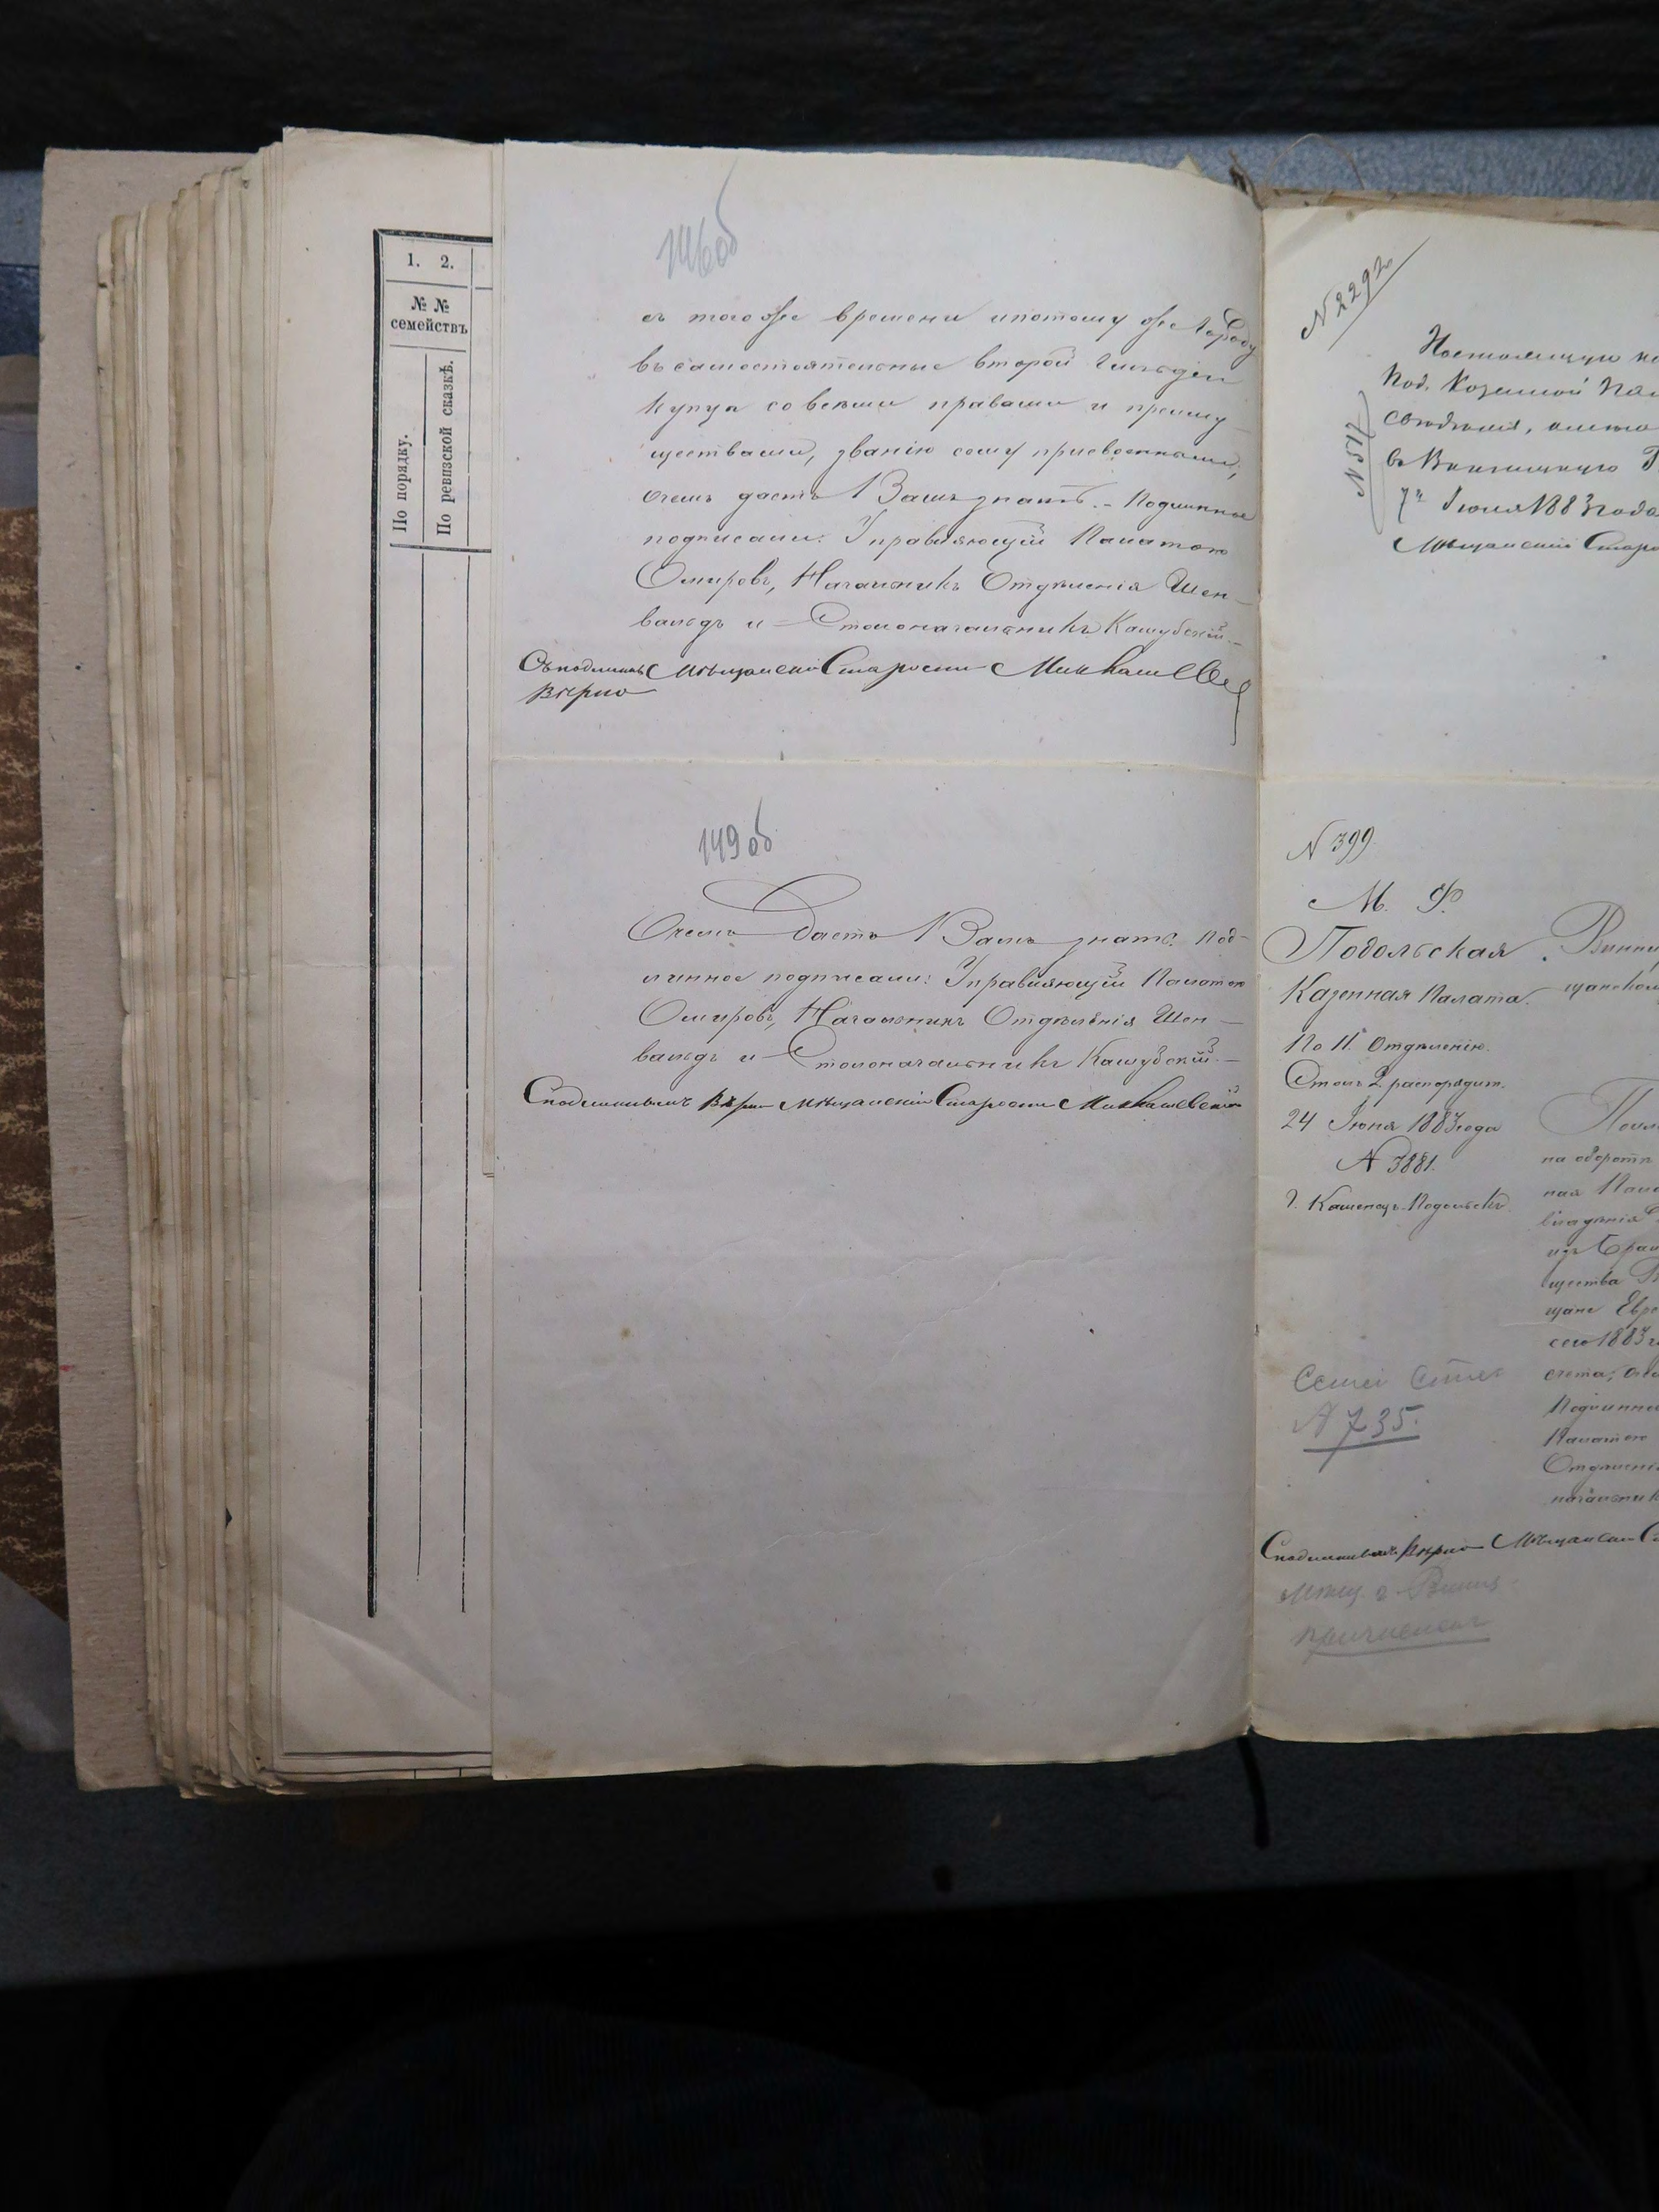 1. 2.
№ №
семействъ
По порядку.
По ревизской сказкѣ.
146об
съ того же времени и потому же городу
въ самостоятельные второй гильдіи
купца со всѣми правами и преиму-
ществами, званію сему присвоенными,
о чемъ дастъ Вамъ знать. - Подлинное
подписали: Управляющій Палатою
Омировъ, Начальникъ Отдѣленія Шен-
вальдъ и Столоначальникъ Кашубскій. -
Съ подлиннымъ Мѣщанскій Староста
Вѣрно
149 об
О чемъ дастъ Вамъ знать. Под-
линное подписали: Управляющій Палатою
Омировъ, Начальникъ Отдѣленія Шен-
вальдъ и Столоначальникъ Кашубскій. -
Съ подлиннымъ Вѣрно Мѣщанскій Староста
N 2292
N 517
Настоящую
Под. Казенной
свѣдѣнія,
въ Винницкую
7го Іюля 1883 года
Мѣщанскій
N 399.
М. Ф.
Подольская
Казенная Палата.
По II. Отдѣленію.
Столъ 2 распорядит.
24 Іюня 1883 года
N 3881.
г. Каменецъ-Подольскъ.
на оборотѣ
ная
владѣнія
изъ
щества
щане
сего 1883
счета,
Подлинное
Палатою
Отдѣленія
начальникъ
N 735.
Съ подлиннымъ Вѣрно Мѣщанскій